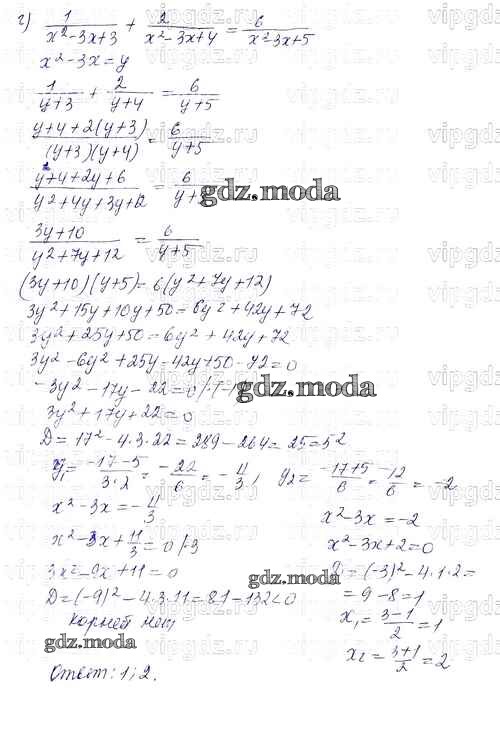 г) 1/(x²-3x+3) + 2/(x²-3x+4) = 6/(x²-3x+5)
x²-3x=y
1/(y+3) + 2/(y+4) = 6/(y+5)
(y+4+2(y+3))/((y+3)(y+4)) = 6/(y+5)
(y+4+2y+6)/(y²+4y+3y+12) = 6/(y+5)
gdz.moda
(3y+10)/(y²+7y+12) = 6/(y+5)
(3y+10)(y+5)=6(y²+7y+12)
3y²+15y+10y+50=6y²+42y+72
3y²+25y+50=6y²+42y+72
3y²-6y²+25y-42y+50-72=0
-3y²-17y-22=0 /·(-1)
gdz.moda
3y²+17y+22=0
D=17²-4·3·22=289-264=25=5²
y₁=(-17-5)/(3·2)=-22/6=-11/3; y₂=(-17+5)/6=-12/6=-2
x²-3x=-11/3
x²-3x+11/3=0 /·3
3x²-9x+11=0
D=(-9)²-4·3·11=81-132<0
корней нет
gdz.moda
x²-3x=-2
x²-3x+2=0
gdz.moda
D=(-3)²-4·1·2=
=9-8=1
x₁=(3-1)/2=1
x₂=(3+1)/2=2
Ответ: 1; 2.
vipgdz.ru